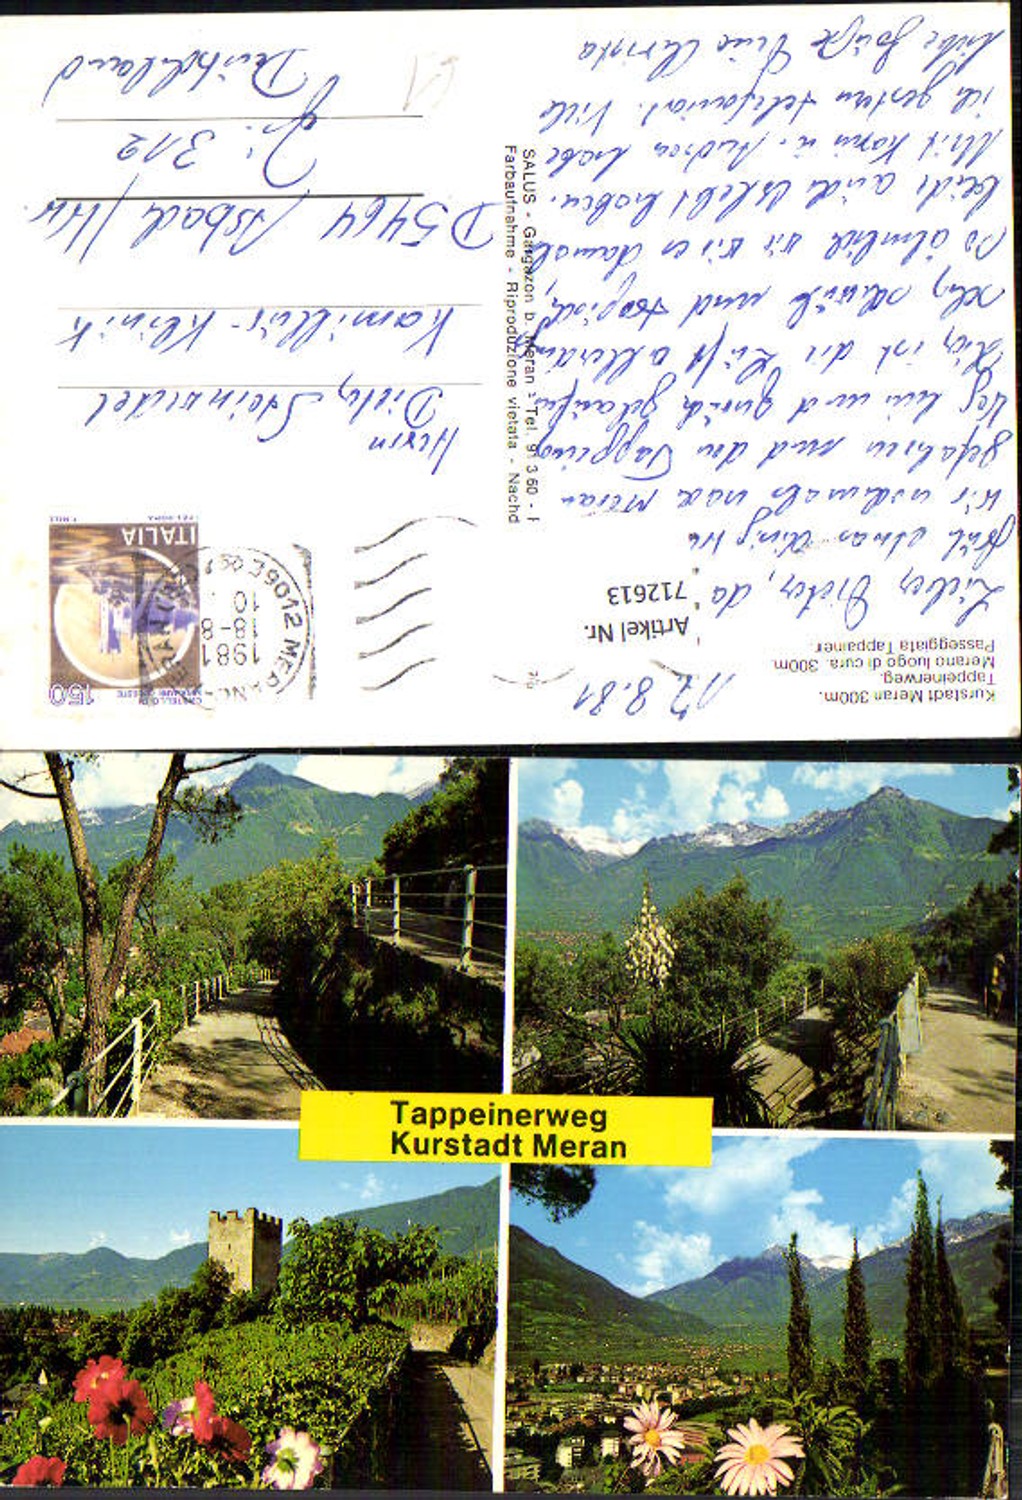 Kurstadt Meran 300m.
Tappeinerweg.
Merano luogo di cura. 300m.
Passeggiata Tappainer.
12.8.81
Lieber Dieter, da
früh etwas
wir nochmals nach Meran
gefahren und den Tappeiner
Weg hin und zurück gelaufen
Hier ist die Luft allerdings
sehr schwül und tropisch,
so ähnlich wie wir es damals
beide auch erlebt haben.
Mit Karin u. Andrea habe
ich gestern telefoniert. Viele
liebe Grüße Deine Christa
Artikel Nr.
712613
SALUS - Gargazon b. Meran - Tel. 91 3 60 -
Farbaufnahme - Riproduzione vietata - Nachd
150
CASTELLO DI
ITALIA
39012 MERANO
1981
18-8
10
Herrn
Dieter Steinseidel
Kamillus-Klinik
D 5464 Asbach/Ww.
Zi: 312
Deutschland
Tappeinerweg
Kurstadt Meran